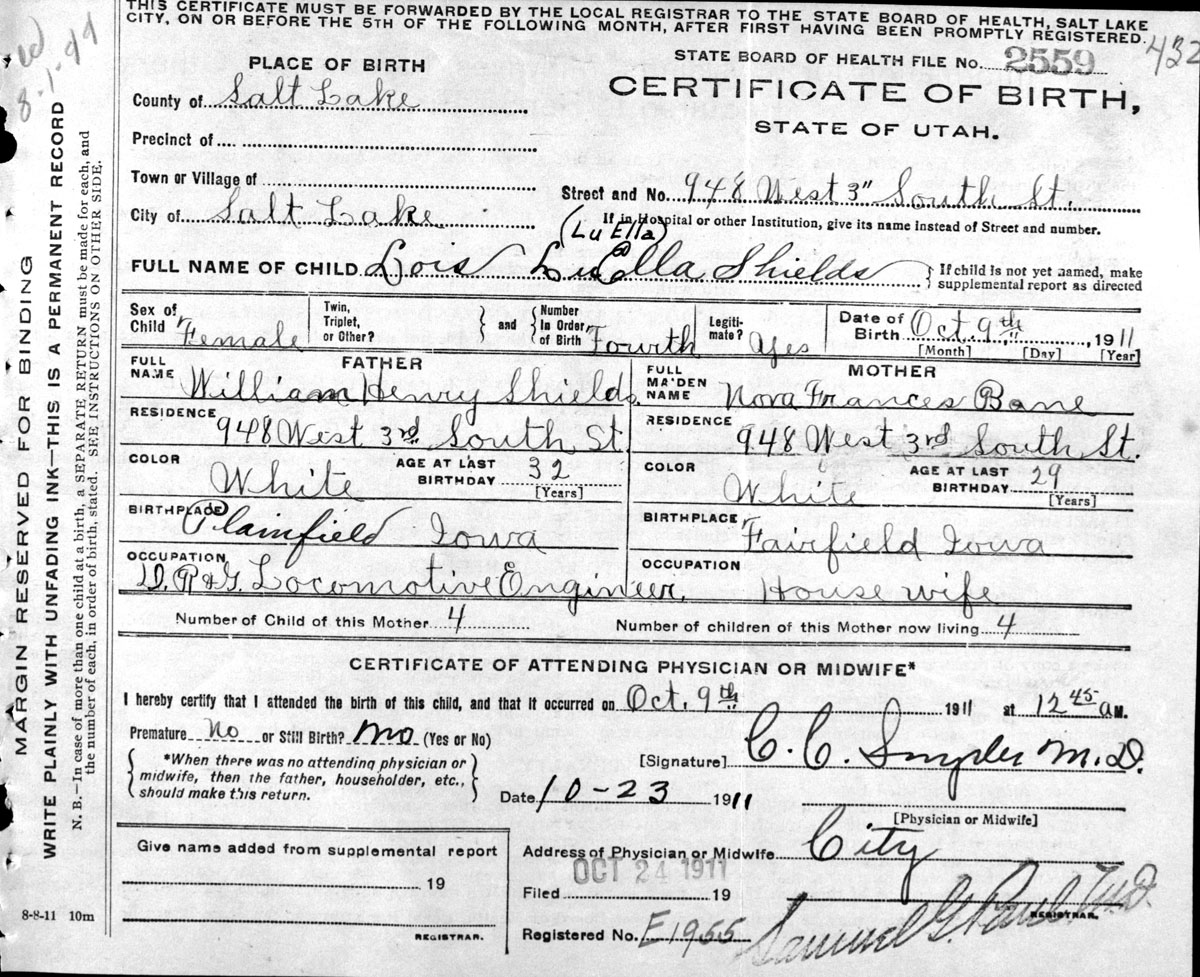 THIS CERTIFICATE MUST BE FORWARDED BY THE LOCAL REGISTRAR TO THE STATE BOARD OF HEALTH, SALT LAKE
CITY, ON OR BEFORE THE 5TH OF THE FOLLOWING MONTH, AFTER FIRST HAVING BEEN PROMPTLY REGISTERED.
432
8-1-99
STATE BOARD OF HEALTH FILE No. 2559
PLACE OF BIRTH
CERTIFICATE OF BIRTH,
STATE OF UTAH.
County of Salt Lake
Precinct of
Town or Village of
Street and No. 948 West 3" South St.
City of Salt Lake
If in Hospital or other Institution, give its name instead of Street and number.
(Lu Ella)
FULL NAME OF CHILD Lois LuElla Shields
If child is not yet named, make
supplemental report as directed
Sex of Child Female
Twin, Triplet, or Other?
and
Number In Order of Birth Fourth
Legiti-mate? Yes
Date of Birth Oct. 9th, 1911
[Month] [Day] [Year]
FATHER
FULL NAME William Henry Shields
MOTHER
FULL MAIDEN NAME Nora Frances Bane
RESIDENCE 948 West 3rd South St.
RESIDENCE 948 West 3rd South St.
COLOR White
AGE AT LAST BIRTHDAY 32
[Years]
COLOR White
AGE AT LAST BIRTHDAY 29
[Years]
BIRTHPLACE Plainfield Iowa
BIRTHPLACE Fairfield Iowa
OCCUPATION D. R & G. Locomotive Engineer.
OCCUPATION House wife
Number of Child of this Mother 4
Number of children of this Mother now living 4
CERTIFICATE OF ATTENDING PHYSICIAN OR MIDWIFE*
I hereby certify that I attended the birth of this child, and that it occurred on Oct. 9th 1911 at 12 45 a M.
Premature No or Still Birth? No (Yes or No)
*When there was no attending physician or
midwife, then the father, householder, etc.,
should make this return.
[Signature] C. C. Snyder M. D.
Date 10-23 1911
[Physician or Midwife]
Give name added from supplemental report
19
REGISTRAR.
Address of Physician or Midwife City
OCT 24 1911
Filed 19
Samuel G. Paul M.D.
REGISTRAR.
Registered No. E1955
8-8-11 10m
MARGIN RESERVED FOR BINDING
WRITE PLAINLY WITH UNFADING INK—THIS IS A PERMANENT RECORD
N. B.—In case of more than one child at a birth, a SEPARATE RETURN must be made for each, and
the number of each, in order of birth, stated. SEE INSTRUCTIONS ON OTHER SIDE.